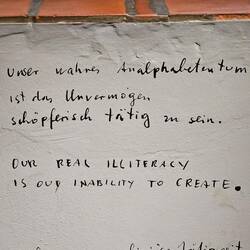 Unser wahres Analphabetentum
ist das Unvermögen
schöpferisch tätig zu sein.
OUR REAL ILLITERACY
IS OUR INABILITY TO CREATE.